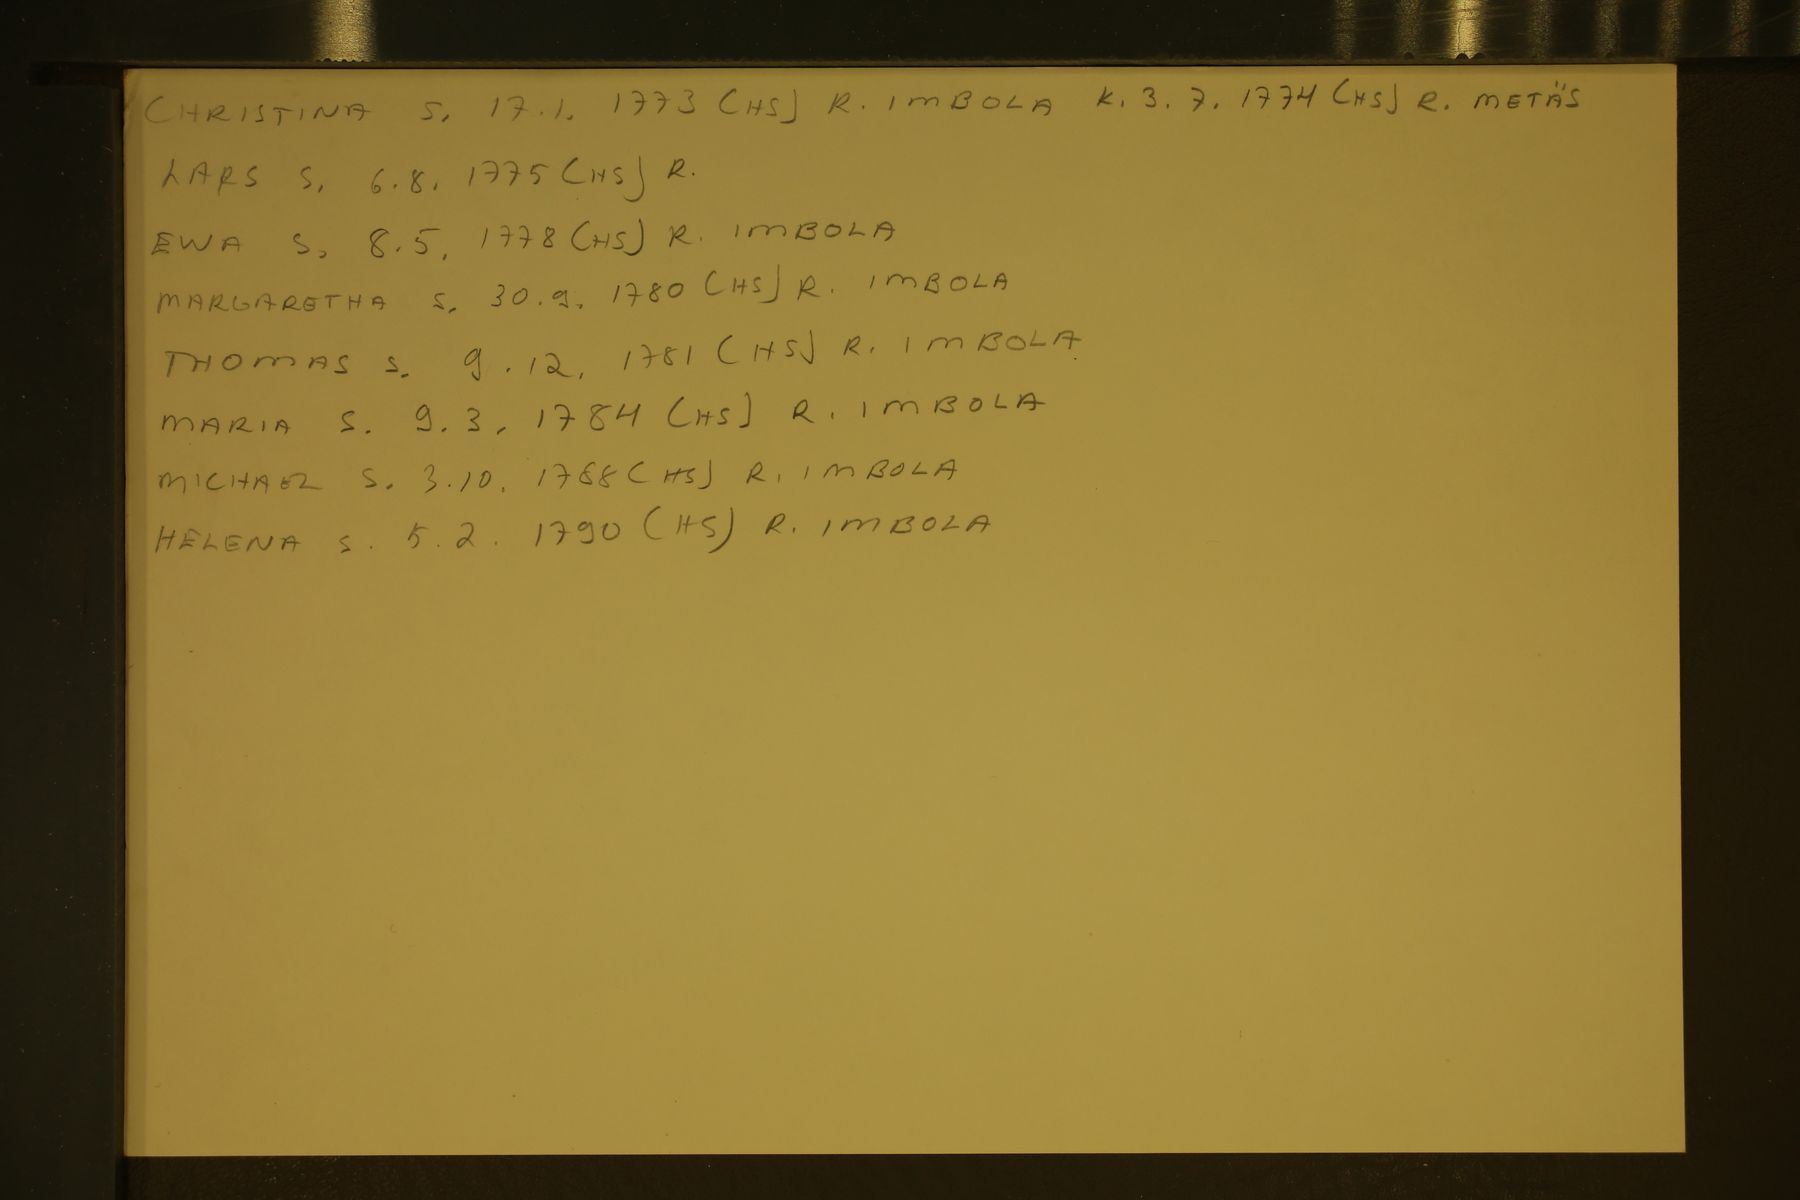 CHRISTINA S. 17.1. 1773 (HS) R. IMBOLA K. 3.7. 1774 (HS) R. METÄS
LARS S. 6.8. 1775 (HS) R.
EWA S. 8.5. 1778 (HS) R. IMBOLA
MARGARETHA S. 30.9. 1780 (HS) R. IMBOLA
THOMAS S. 9.12. 1781 (HS) R. IMBOLA
MARIA S. 9.3. 1784 (HS) R. IMBOLA
MICHAEL S. 3.10. 1788 (HS) R. IMBOLA
HELENA S. 5.2. 1790 (HS) R. IMBOLA